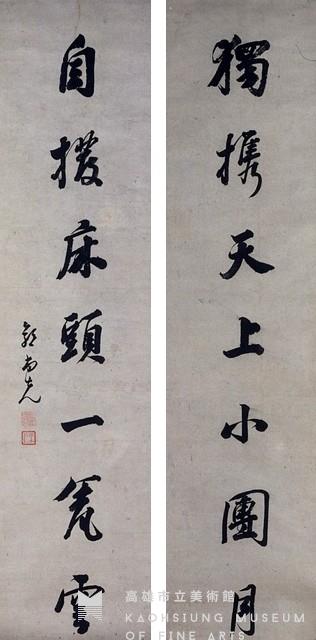 獨攜天上小團月
自撥床頭一甕雪
郭尚先
高雄市立美術館
KAOHSIUNG MUSEUM
OF FINE ARTS